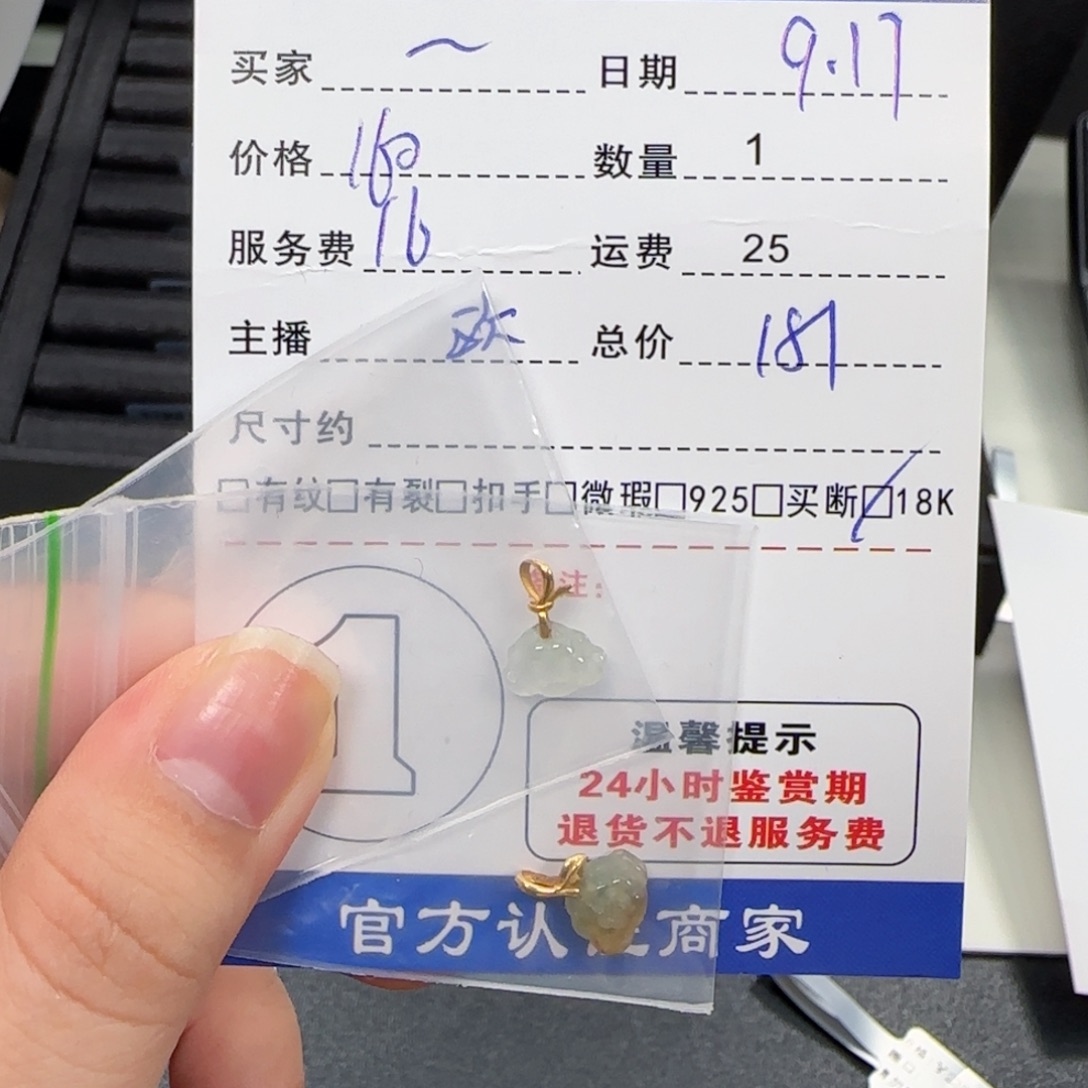 买家 ~ 日期 9.17
价格 160 数量 1
服务费 16 运费 25
主播 欢 总价 187
尺寸约
□有纹□有裂□扣手□微瑕□925□买断□18K
备注:
1
温馨提示
24小时鉴赏期
退货不退服务费
官方认证商家